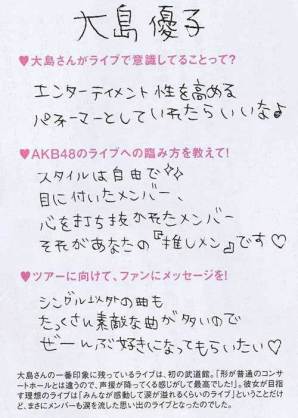 大島優子
♥大島さんがライブで意識してることって?
エンターティメント性を高める
パフォーマーとしていれたらいいな♪
♥AKB48のライブへの臨み方を教えて!
スタイルは自由で✧✧
目に付いたメンバー、
心を打ち抜かれたメンバー
それがあなたの『推しメン』です♡
♥ツアーに向けて、ファンにメッセージを!
シングル以外の曲も
たっくさん素敵な曲が多いので
ぜーんぶ好きになってもらいたい♡
大島さんの一番印象に残っているライブは、初の武道館。「形が普通のコンサ
ートホールとは違うので、声援が降ってくる感じがして最高でした!」。彼女が目
指す理想のライブは「みんなが感動して涙が溢れるくらいのライブ」ということだけ
ど、まさにメンバーも涙を流した思い出のライブとなったのでした。